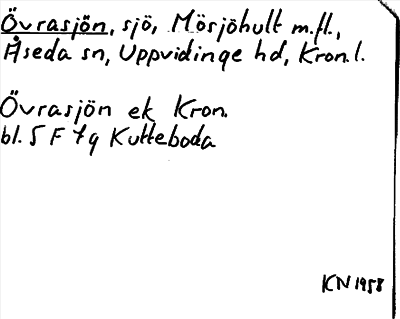 Övrasjön, sjö, Mösjöhult m.fl.,
Åseda sn, Uppvidinge hd, Kron.l.
Övrasjön ek Kron.
bl. 5 F 7g Kutteboda
KN 1958